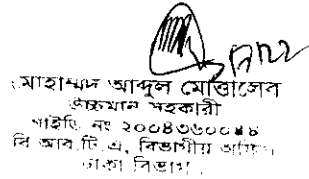 মোহাম্মদ আব্দুল মোত্তালেব
উচ্চমান সহকারী
আইডি নং ২০০৪৩৬০০৪৮
বি আর টি এ, বিভাগীয় অফিস
ঢাকা বিভাগ